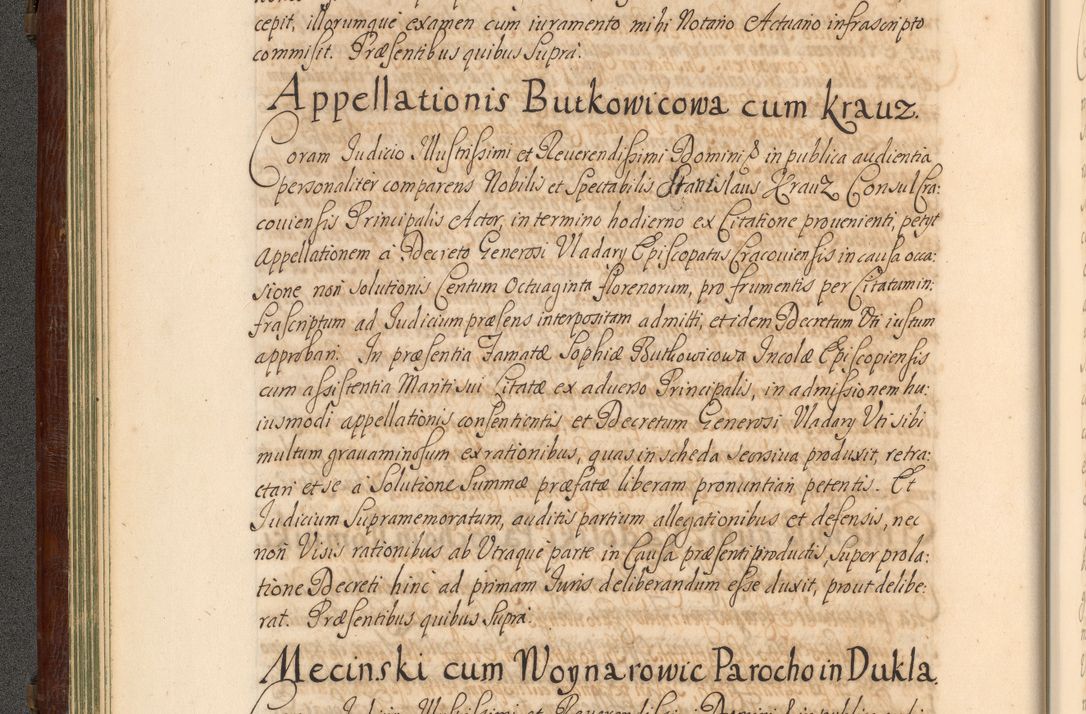 cepit, illorumque examen cum iuramento mihi Notario Actuario infrascripto
commisit. Præsentibus quibus Supra.
Appellationis Butkowicowa cum Krauz.
Coram Judicio Illustrissimi et Reuerendissimi Domini in publica audientia
personaliter comparens Nobilis et Spectabilis Stanislaus Krauz Consul Cra:
couiensis Principalis Actor, in termino hodierno ex Citatione prouenienti, petijt
Appellationem a Decreto Generosi Vladary Episcopatus Cracouiensis in causa occa:
sione non solutionis Centum Octuaginta florenorum, pro frumentis per Citatum in:
frascriptum ad Judicium præsens interpositam admitti, et idem Decretum Uti iustum
approbari. In præsentia Famatæ Sophiæ Butkowicowa Incolæ Episcopiensis
cum assistentia Mariti sui Citatæ ex aduerso Principalis, in admissionem hu:
iusmodi appellationis consentientis et Decretum Generosi Vladary Uti sibi
multum grauaminosum ex rationibus, quas in scheda seorsiua produxit, retra:
ctari et se a Solutione Summæ præfatæ liberam pronuntiari petentis. Et
Judicium Supramemoratum, auditis partium allegationibus et defensis, nec
non Visis rationibus ab Utraque parte in Causa præsenti productis, super prola:
tione Decreti hinc ad primam Juris deliberandum esse duxit, prout delibe:
rat. Præsentibus quibus Supra.
Mecinski cum Woynarowic Parocho in Dukla.